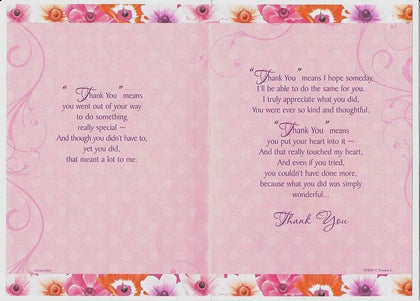 “Thank You” means
you went out of your way
to do something
really special ~
And though you didn't have to,
yet you did,
that meant a lot to me.
“Thank You” means I hope someday,
I'll be able to do the same for you.
I truly appreciate what you did,
You were ever so kind and thoughtful.
“Thank You” means
you put your heart into it ~
And that really touched my heart,
And even if you tried,
you couldn't have done more,
because what you did was simply
wonderful...
Thank You